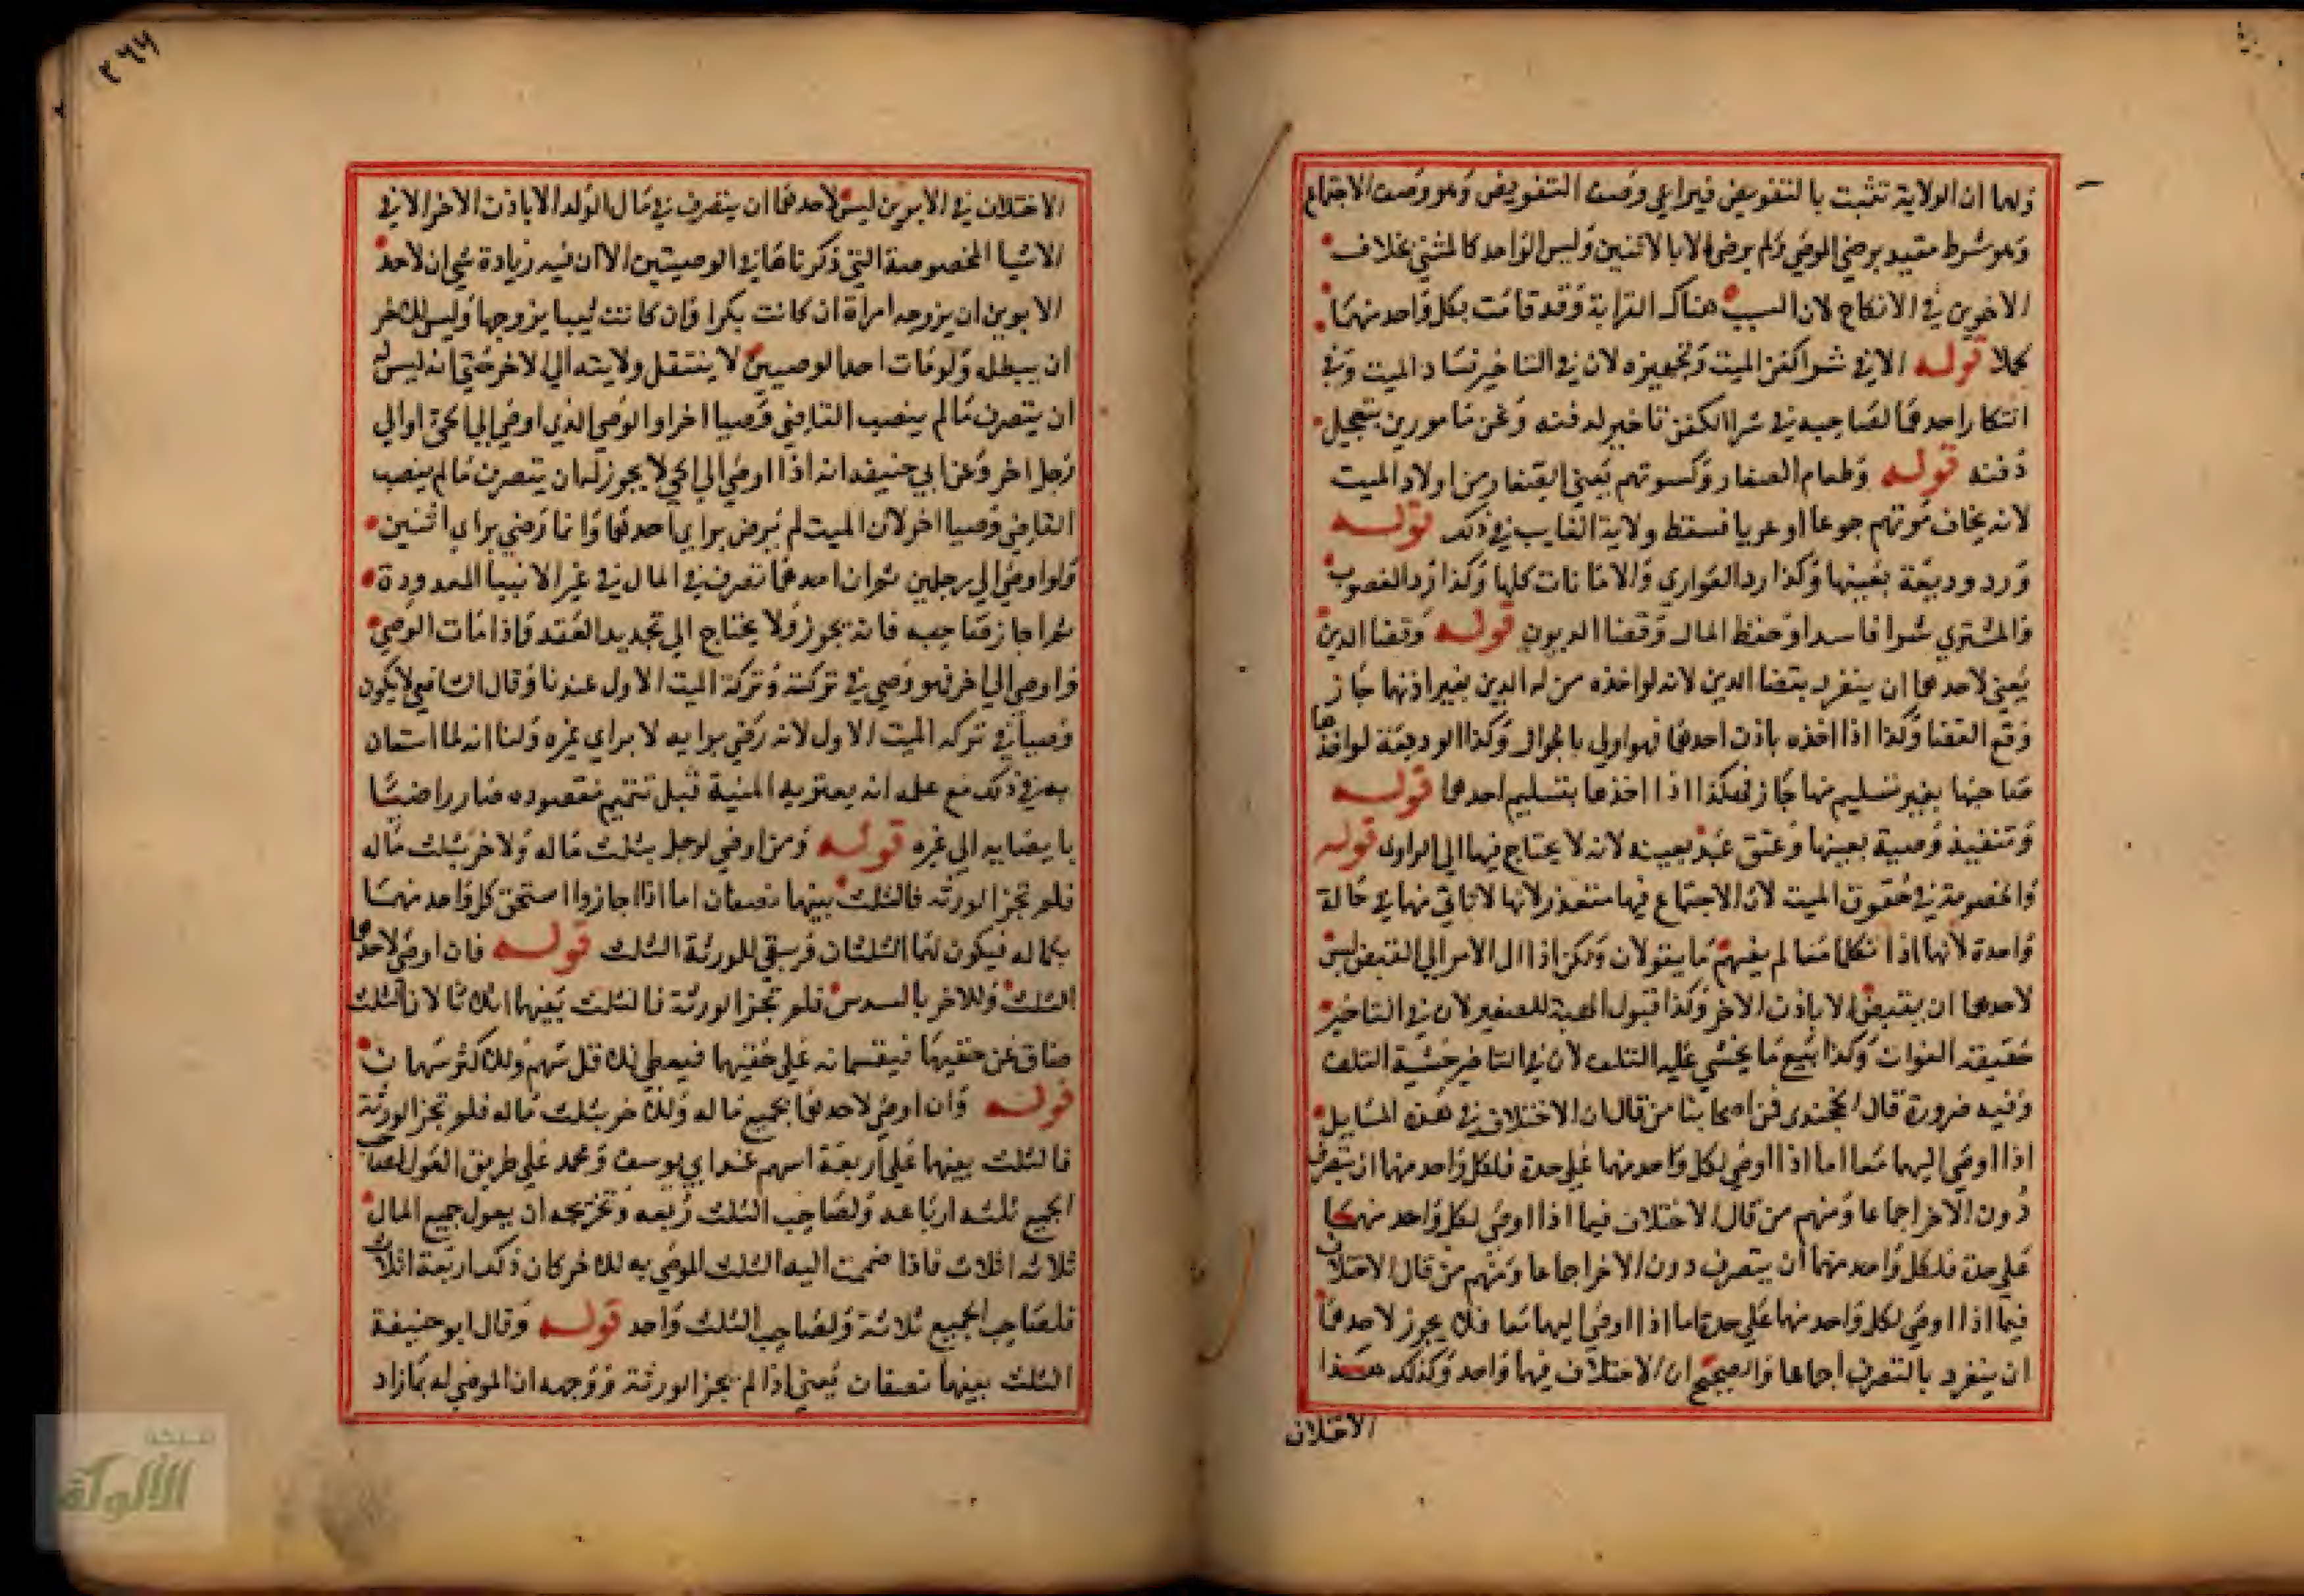 ولهما ان الولاية تثبت بالتفويض فيراعي وصف التفويض وهو وصف الاجتماع
وهو شرط مقيد برضي الموصي ولم يرض الا بالاثنين وليس الواحد كالمثني بخلاف
الاخوين في الانكاح لان السبب هناك القرابة وقد قامت بكل واحد منهما
كملا قوله الا في شرا كفن الميت وتجهيزه لان في التاخير فساد الميت وفي
انتظار احدهما لصاحبه في شرا الكفن تاخير لدفنه ونحن مامورين بتعجيل
دفنه قوله وطعام الصغار وكسوتهم يعني الصغار من اولاد الميت
لانه يخاف موتهم جوعا او عريا فسقط ولاية الغايب في ذلك قوله
ورد وديعة بعينها وكذا رد العواري والامانات كلها وكذا رد المغصوب
والمشتري شرا فاسدا وحفظ المال وقضا الديون قوله وقضا الدين
يعني لاحدهما ان ينفرد بقضا الدين لانه لو اخذه من له الدين بغير اذنهما جاز
وقع القضا وكذا اذا اخذه باذن احدهما فهو اولي بالجواز وكذا الوديعة لو اخذها
صاحبها بغير تسليم منهما جاز فهكذا اذا اخذها بتسليم احدهما قوله
وتنفيذ وصية بعينها وعتق عبد بعينه لانه لا يحتاج فيها الي الراوى قوله
والخصومة في حقوق الميت لان الاجتماع فيها متعذر لانها لا تاتي منهما في حالة
واحدة لانهما اذا تكلما معا لم يفهم ما يقولان ولكن اذا ال الامر الي القبض ليس
لاحدهما ان يقبض الا باذن الاخر وكذا قبول الهبة للصغير لان في التاخير
حقيقة الفوات وكذا بيع ما يخشي عليه التلف لان في التاخير خشية التلف
وفيه ضرورة قال الخجندى فمن اصحابنا من قال ان الاختلاف في هذه المسايل
اذا اوصي اليهما معا اما اذا اوصي لكل واحد منهما علي حدة فلكل واحد منهما ان يتصرف
دون الاخر اجماعا ومنهم من قال الاختلاف فيما اذا اوصي لكل واحد منهما
علي حدة فلكل واحد منهما ان يتصرف دون الاخر اجماعا ومنهم من قال الاختلاف
فيما اذا اوصي لكل واحد منهما علي حدة اما اذا اوصي اليهما معا فلا يجوز لاحدهما
ان ينفرد بالتصرف اجماعا والصحيح ان الاختلاف فيهما واحد وكذلك هذا
الاختلاف
٢٦٦
الاختلاف في الابوين ليس لاحدهما ان يتصرف في مال الولد الا باذن الاخر الا في
الاشيا المخصوصة التي ذكرناها في الوصيتين الا ان فيه زيادة شي ان لاحد
الابوين ان يزوجه امراة ان كانت بكرا وان كانت ثيبا يزوجها وليس للاخر
ان يبطله ولو مات احد الوصيين لا ينتقل ولايته الي الاخر حتي انه ليس له
ان يتصرف ما لم ينصب القاضي وصيا اخر او الوصي الذي اوصي الي الحي او الي
رجل اخر وعن ابي حنيفه انه اذا اوصي الي الحي لا يجوز له ان يتصرف ما لم ينصب
القاضي وصيا اخر لان الميت لم يرض براي احدهما وانما رضي براي اثنين
ولو اوصي الي رجلين ثم ان احدهما تصرف في المال في غير الاشيا المعدودة
ثم اجاز صاحبه فانه يجوز ولا يحتاج الي تجديد العقد واذا مات الوصي
واوصي الي اخر فهو وصي في تركته وتركة الميت الاول عندنا وقال الشافعي لا يكون
وصيا في تركه الميت الاول لانه رضي برايه لا براي غيره ولنا انه لما استعان
به في ذلك مع علمه انه يعتريه المنية قبل تتميم مقصوده صار راضيا
بايصايه الي غيره قوله ومن اوصي لرجل بثلث ماله ولاخر بثلث ماله
فلم تجز الورثه فالثلث بينهما نصفان اما اذا اجازوا استحق كل واحد منهما
بكماله فيكون لهما الثلثان ويبقي للورثة الثلث قوله فان اوصي لاحدهما
الثلث وللاخر بالسدس فلم تجز الورثة فالثلث بينهما اثلاثا لان الثلث
ضاق عن حقيهما فيقتسمانه علي حقيهما فيعطي للاقل سهم وللاكثر سهمان
قوله وان اوصي لاحدهما بجميع ماله وللاخر بثلث ماله فلم تجز الورثة
فالثلث بينهما علي اربعة اسهم عند ابي يوسف ومحمد علي طريق العول لصاحب
الجميع ثلثه ارباعه ولصاحب الثلث ربعه وتخريجه ان يعول جميع المال
ثلاثه اثلاث فاذا ضممت اليه الثلث الموصي به للاخر كان ذلك اربعة اثلاث
فلصاحب الجميع ثلاثة ولصاحب الثلث واحد قوله وقال ابو حنيفة
الثلث بينهما نصفان يعني اذا لم يجز الورثة ووجهه ان الموصي له بمازاد
شبكة
الألوكة